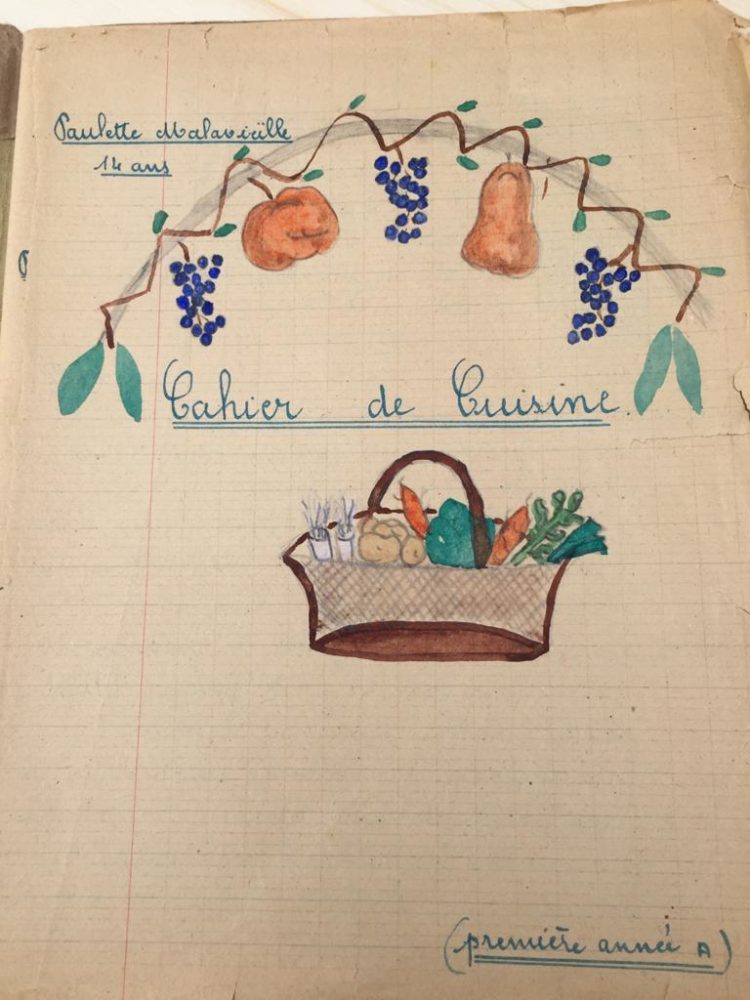 Paulette Malavieille
14 ans
Cahier de Cuisine.
(première année A)